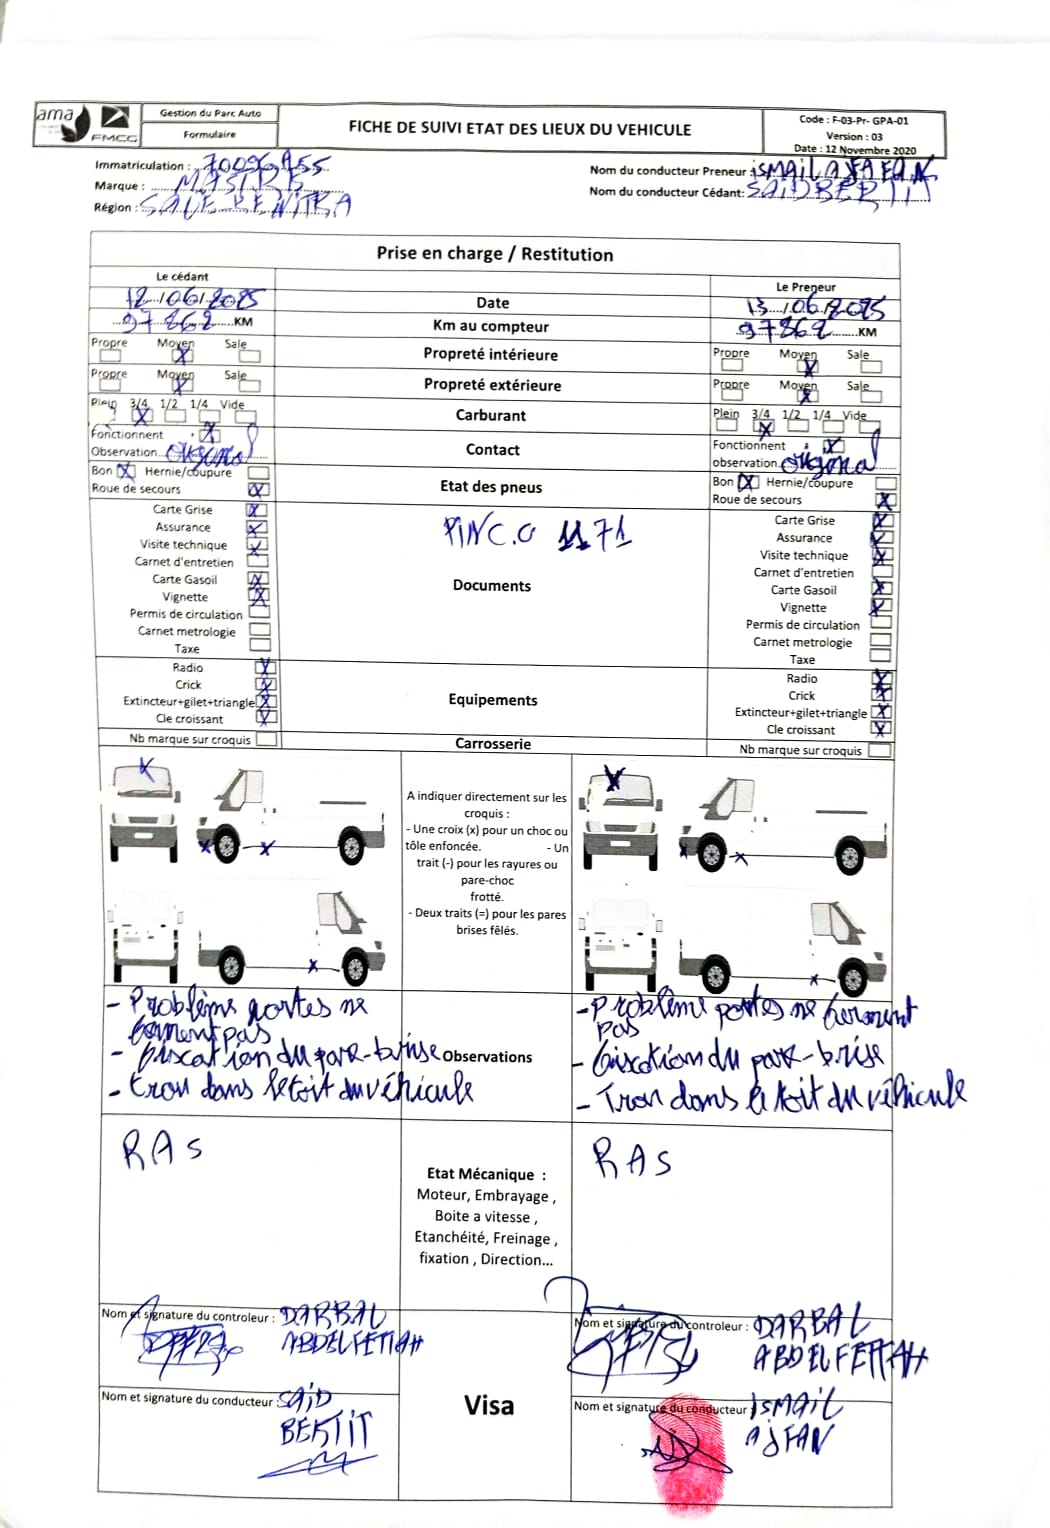 ama FMCG
Gestion du Parc Auto
Formulaire
FICHE DE SUIVI ETAT DES LIEUX DU VEHICULE
Code : F-03-Pr- GPA-01
Version : 03
Date : 12 Novembre 2020
Immatriculation :
Marque :
Région :
Nom du conducteur Preneur : ISMAIL AJFAN
Nom du conducteur Cédant: SAID BERTIT
Prise en charge / Restitution
Le cédant
Le Preneur
12/06/2025 Date 13/06/2025
97862 KM Km au compteur 97862 KM
Propre Moyen Sale Propreté intérieure Propre Moyen Sale
Propre Moyen Sale Propreté extérieure Propre Moyen Sale
Plein 3/4 1/2 1/4 Vide Carburant Plein 3/4 1/2 1/4 Vide
Fonctionnent Contact Fonctionnent
Observation original observation original
Bon Hernie/coupure Etat des pneus Bon Hernie/coupure
Roue de secours Roue de secours
Carte Grise
Assurance
Visite technique
Carnet d'entretien
Carte Gasoil
Vignette
Permis de circulation
Carnet metrologie
Taxe
1171
Documents
Carte Grise
Assurance
Visite technique
Carnet d'entretien
Carte Gasoil
Vignette
Permis de circulation
Carnet metrologie
Taxe
Radio
Crick
Extincteur+gilet+triangle
Cle croissant
Equipements
Radio
Crick
Extincteur+gilet+triangle
Cle croissant
Nb marque sur croquis Carrosserie Nb marque sur croquis
A indiquer directement sur les
croquis :
- Une croix (x) pour un choc ou
tôle enfoncée. - Un
trait (-) pour les rayures ou
pare-choc
frotté.
- Deux traits (=) pour les pares
brises fêlés.
- Problème portes ne
ferment pas
- fixcation du pare-brise
- trou dans le toit du véhicule
Observations
- Problème portes ne ferment
pas
- fixcation du pare-brise
- Trou dans le toit du véhicule
RAS
Etat Mécanique :
Moteur, Embrayage ,
Boite a vitesse ,
Etanchéité, Freinage ,
fixation , Direction...
RAS
Nom et signature du controleur : DARBAL
ABDELFETTAH
Nom et signature du controleur : DARBAL
ABDELFETTAH
Nom et signature du conducteur : SAID
BERTIT
Visa
Nom et signature du conducteur : ISMAIL
AJFAN